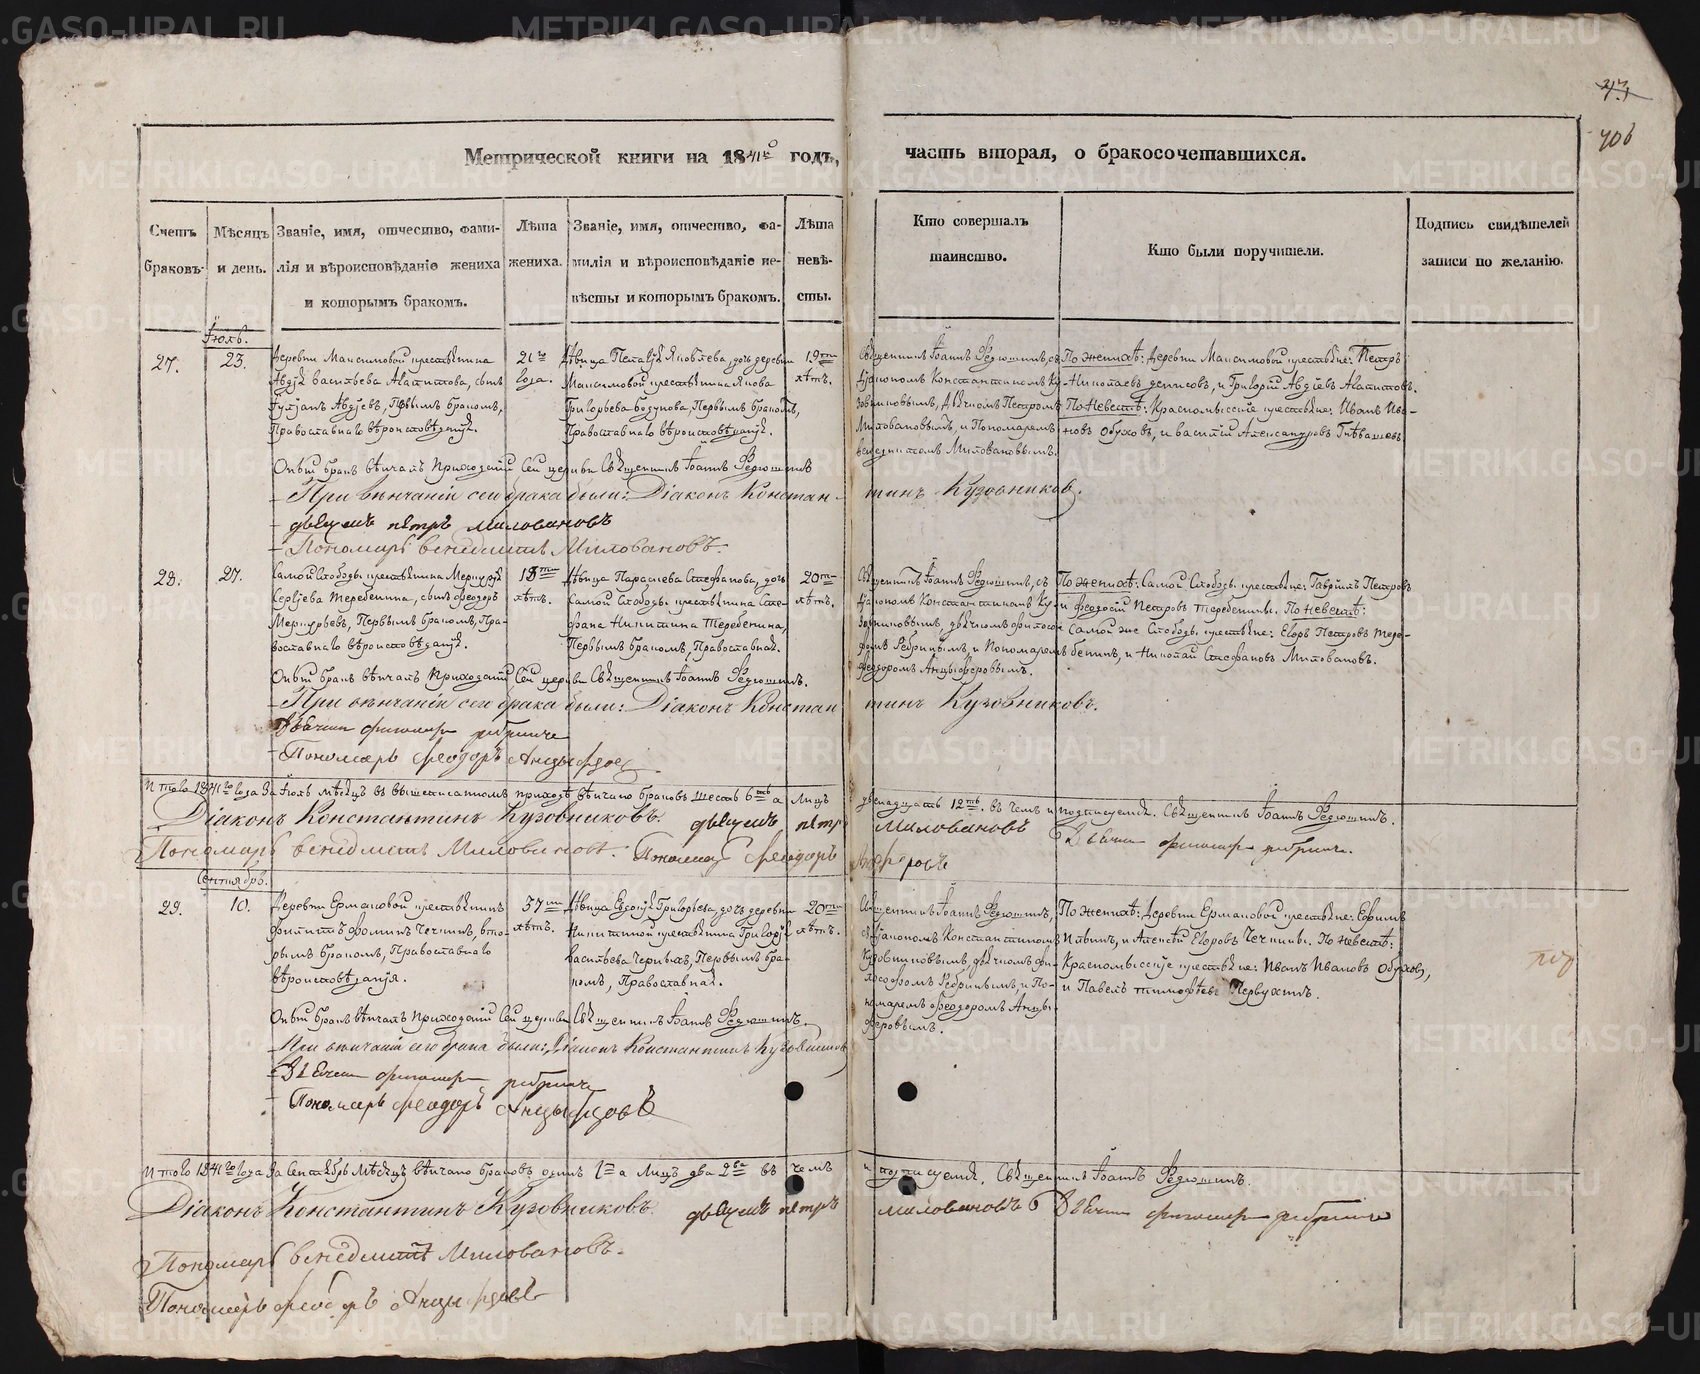 43
406
Метрической книги на 1841й годъ, часть вторая, о бракосочетавшихся.
Счетъ браковъ.
Мѣсяцъ и день.
Званіе, имя, отчество, фами-
лія и вѣроисповѣданіе жениха
и которымъ бракомъ.
Лѣта
жениха.
Званіе, имя, отчество, фа-
милія и вѣроисповѣданіе не-
вѣсты и которымъ бракомъ.
Лѣта
невѣ-
сты.
Кто совершалъ
таинство.
Кто были поручители.
Подпись свидѣтелей
записи по желанію.
Іюль.
27.
23.
Деревни Максимовой крестьянина
Авдѣя Васильева Алатитова, сынъ
Авдѣевъ, Первымъ бракомъ,
Православнаго вѣроисповѣданія.
21го
года.
Дѣвица Пелагѣя Яковлева, дочь деревни
Максимовой крестьянина Якова
Григорьева Первымъ бракомъ,
Православнаго вѣроисповѣданія.
19ти
лѣтъ.
Священникъ Іоаннъ Ѳедюшинъ, съ
Діакономъ Константиномъ Ку-
зовниковымъ, Дьячкомъ Петромъ
Миловановымъ, и Пономаремъ
Венедиктомъ Миловановымъ.
По женихѣ: Деревни Максимовой крестьяне: Петръ
Николаевъ Денисовъ, и Григорій Авдѣевъ Алатитовъ.
По Невестѣ: Красномысскіе крестьяне: Иванъ Ива-
новъ Обуховъ, и Василій Александровъ
Оный бракъ вѣнчалъ Приходскій Сей церкви Священникъ Іоаннъ Ѳедюшинъ
При вѣнчаніи сего брака были: Діаконъ Констан-
тинъ Кузовниковъ.
дьячекъ петръ миловановъ
Пономарь венедиктъ Миловановъ.
28.
27.
Самой Слободы крестьянина Меркурія
Сергѣева Теребенина, сынъ Феодоръ
Меркурьевъ, Первымъ бракомъ, Пра-
вославнаго вѣроисповѣданія.
18ти
лѣтъ.
Дѣвица Параскева Стефанова, дочь
Самой Слободы крестьянина Сте-
фана Никитина Теребенина,
Первымъ бракомъ, Православная.
20ти
лѣтъ.
Священникъ Іоаннъ Ѳедюшинъ, съ
Діакономъ Константиномъ Ку-
зовниковымъ, дьячкомъ филосо-
фомъ Ребринымъ, и Пономаремъ
Феодоромъ Анцыферовымъ.
По женихѣ: Самой Слободы крестьяне: Гаврилъ Петровъ
и Феодосій Петровъ Теребенины. По невестѣ:
Самой же Слободы крестьяне: Егоръ Петровъ Тере-
бенинъ, и Николай Стефановъ Миловановъ.
Оный бракъ вѣнчалъ Приходскій Сей церкви Священникъ Іоаннъ Ѳедюшинъ.
При вѣнчаніи сего брака были: Діаконъ Констан
тинъ Кузовниковъ.
Дьячекъ философъ ребринъ
Пономарь феодоръ Анцыфровъ
Итого 1841го года за Іюль мѣсяцъ въ вышеписанномъ приходѣ вѣнчано браковъ шесть 6ть а лицъ
двенадцать 12ть. въ чемъ и подписуемся. Священникъ Іоаннъ Ѳедюшинъ.
Діаконъ Константинъ Кузовниковъ. дьячекъ петръ
миловановъ Дьячекъ философъ ребринъ.
Пономарь венедиктъ Миловановъ. Пономарь Феодоръ
Сентябрь.
29.
10.
Деревни Ермаковой крестьянинъ
Филиппъ Фоминъ Чечкинъ, вто-
рымъ бракомъ, Православнаго
вѣроисповѣданія.
37ми
лѣтъ.
Дѣвица Евдокія Григорьева, дочь деревни
Никитиной крестьянина Григорія
Васильева Черныхъ, Первымъ бра-
комъ, Православная.
20ти
лѣтъ.
Священникъ Іоаннъ Ѳедюшинъ,
съ Діакономъ Константиномъ
Кузовниковымъ, дьячкомъ фи-
лософомъ Ребринымъ, и По-
номаремъ Феодоромъ Анцы-
феровымъ.
По женихѣ: Деревни Ермаковой крестьяне: Ефимъ
Ильинъ, и Алексѣй Егоровъ Чечкины. По невестѣ:
Красномысскіе крестьяне: Иванъ Ивановъ Обуховъ,
и Павелъ Тимофѣевъ Первухинъ.
Оный бракъ вѣнчалъ Приходскій Сей церкви Священникъ Іоаннъ Ѳедюшинъ.
При вѣнчаніи сего брака были: Діаконъ Константинъ Кузовниковъ
Дьячекъ философъ ребринъ
Пономарь феодоръ Анцыфровъ
Итого 1841го года за Сентябрь Мѣсяцъ вѣнчано браковъ одинъ 1нъ а Лицъ два 2ва въ чемъ
и подписуемся. Священникъ Іоаннъ Ѳедюшинъ.
Діаконъ Константинъ Кузовниковъ. дьячекъ петръ
миловановъ Дьячекъ философъ ребринъ
Пономарь венедиктъ Миловановъ.
Пономарь феодоръ Анцыфровъ
METRIKI.GASO-URAL.RU